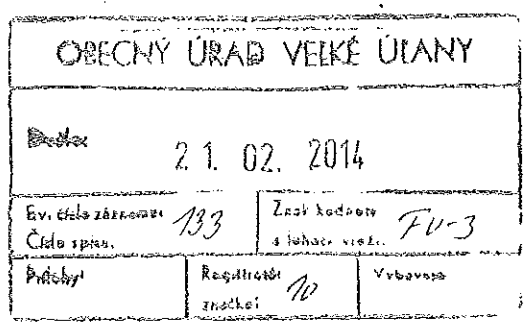 OBECNÝ ÚRAD VEĽKÉ ÚĽANY
Došlo:
2 1. 02. 2014
Ev. číslo záznamu: 133
Číslo spisu:
Znak hodnoty FU-3
a lehota
Prílohy:
Registratúr. 10
značka:
Vybavuje